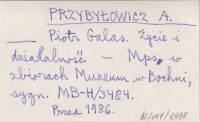 PRZYBYŁOWICZ A.
Piotr Galas. Życie i
działalność. — Mps, w
zbiorach Museum w Bochni,
sygn. MB-H/3484.
Przed 1986.